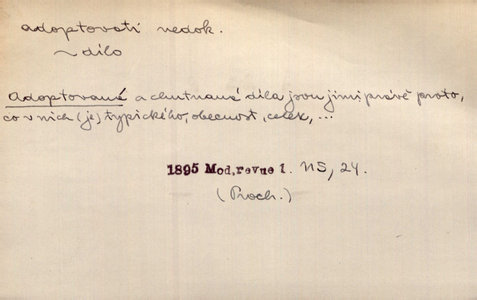 adoptovati nedok.
~ dílo
Adoptované a chutnaná díla jsou jimi právě proto,
co v nich (je) typického, obecnost, celek, ...
1895 Mod. revue 1. NS, 24.
(Proch.)